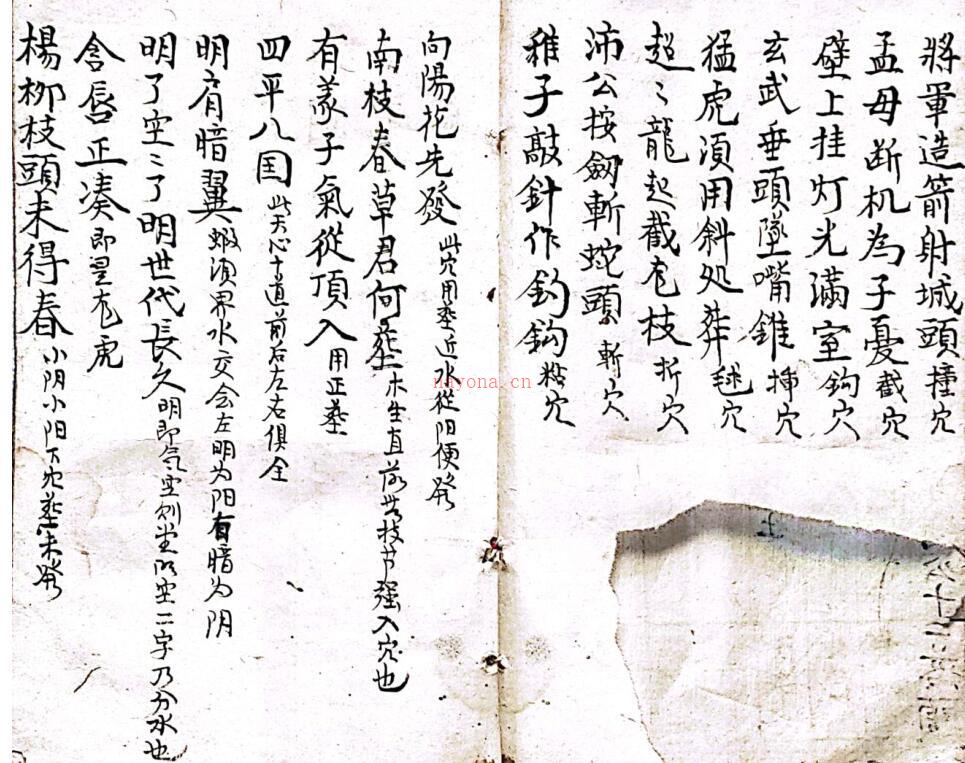 將軍造箭射城頭 撞穴
孟母断机為子憂 截穴
壁上挂灯光滿室 鈎穴
玄武垂頭墜嘴錐 挿穴
猛虎須用斜处葬 毬穴
超〻龍起截龙枝 折穴
沛公按劔斬蛇頭 斬穴
稚子敲針作釣鈎 粘穴
向陽花先發 此穴用塟近水從阳便發
南枝春草君何塟 木生直落無枝节強入穴也
有羕子氣從頂入 用正塟
四平八国 此天心十道前后左右俱全
明肩暗翼 蝦須界水交会左明为阳有暗为阴
明了空〻了明世代長久 明即气空则堂 明空二字乃分水也
含唇正凑 即是龙虎
楊柳枝頭未得春 小阴小阳下穴塟未發
nayona.cn